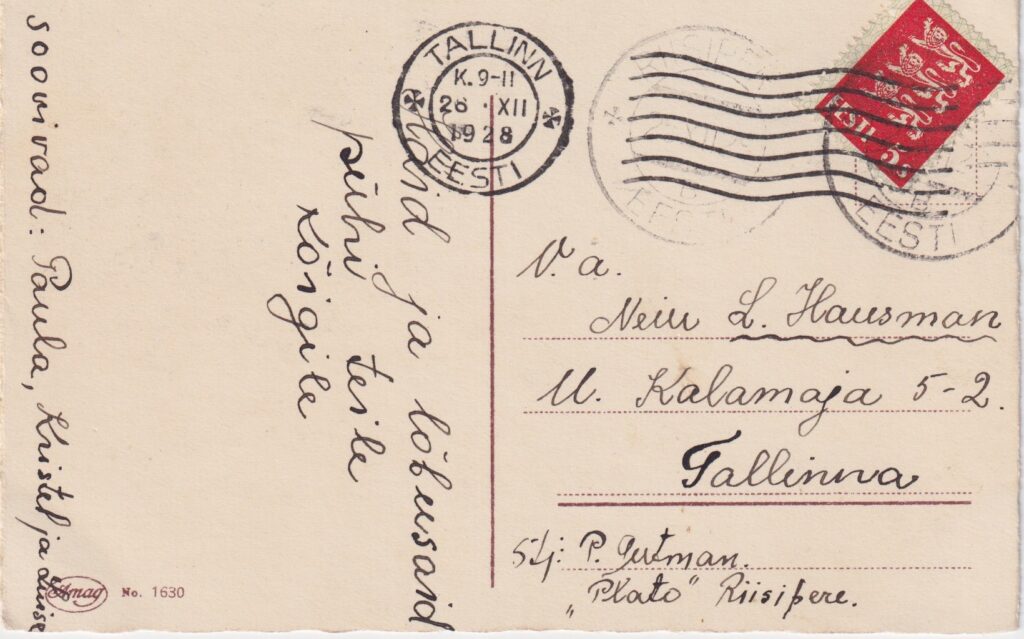 Häid ja lõbusaid
pühi teile
kõigile
soovivad: Paula, Kristel ja Luise
Amag No. 1630
TALLINN
K. 9-11
26 · XII
1928
EESTI
EESTI
EESTI
EESTI 5
V. a.
Neiu L. Hausman
U. Kalamaja 5-2.
Tallinna
P. Gutman.
"Plato" Riisipere.